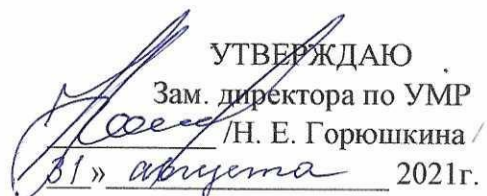 УТВЕРЖДАЮ
Зам. директора по УМР
/Н. Е. Горюшкина
31» августа 2021г.